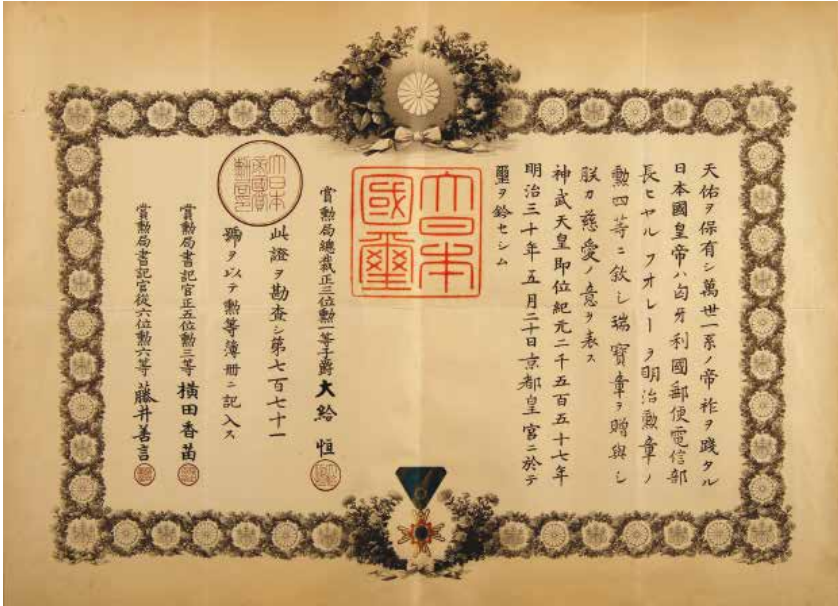 天佑ヲ保有シ萬世一系ノ帝祚ヲ踐タル
日本國皇帝ハ匈牙利國郵便電信部
長ヒヤル フオレーヲ明治勲章ノ
勲四等ニ敘シ瑞寶章ヲ贈與シ
朕カ慈愛ノ意ヲ表ス
神武天皇即位紀元二千五百五十七年
明治三十年五月二十日京都皇宮ニ於テ
璽ヲ鈐セシム
大日本
國璽
賞勲局總裁正三位勲一等子爵大給恒
此證ヲ勘査シ第七百七十一
號ヲ以テ勲等簿册ニ記入ス
賞勲局書記官正五位勲三等横田香苗
賞勲局書記官從六位勲六等藤井善言